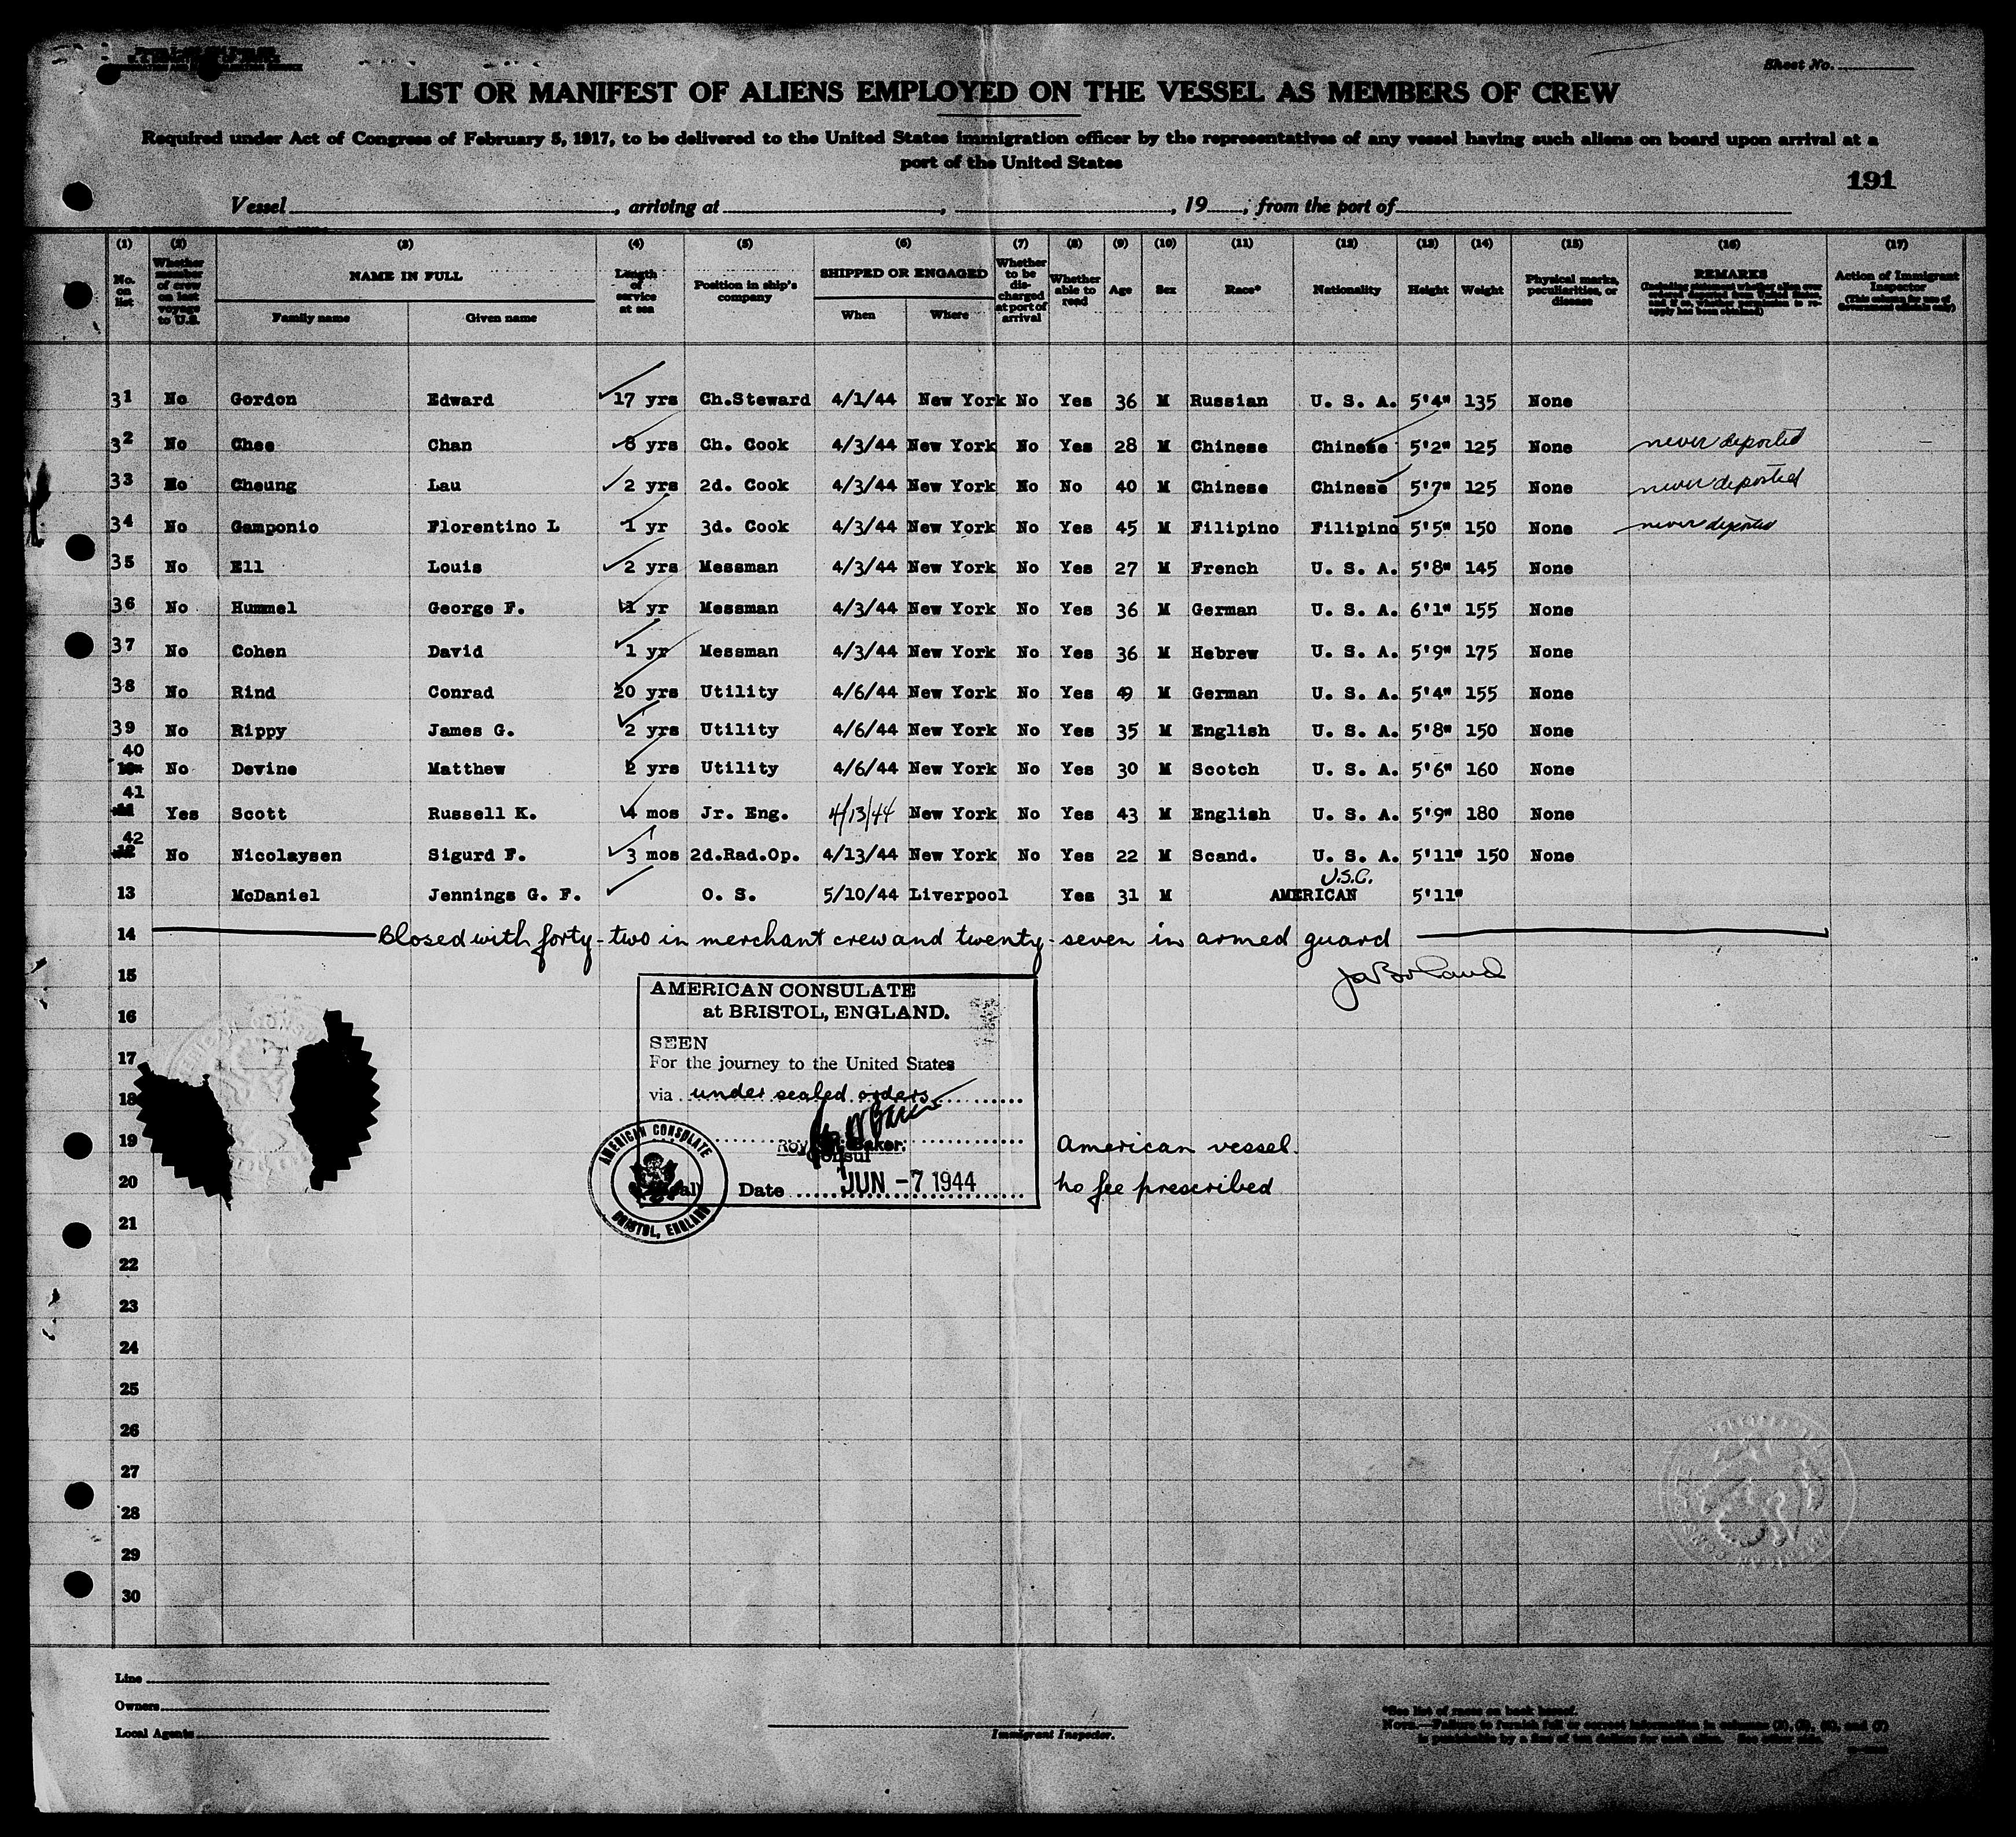 Sheet No.
LIST OR MANIFEST OF ALIENS EMPLOYED ON THE VESSEL AS MEMBERS OF CREW
Required under Act of Congress of February 5, 1917, to be delivered to the United States immigration officer by the representatives of any vessel having such aliens on board upon arrival at a
port of the United States
191
Vessel, arriving at, , 19, from the port of
(1) (2) (3) (4) (5) (6) (7) (8) (9) (10) (11) (12) (13) (14) (15) (16) (17)
No. on list
Whether member of crew on last voyage to U.S.
NAME IN FULL
Family name Given name
Length of service at sea
Position in ship's company
SHIPPED OR ENGAGED
When Where
Whether to be discharged at port of arrival
Whether able to read
Age
Sex
Race*
Nationality
Height
Weight
Physical marks, peculiarities, or disease
REMARKS
(Including statement whether alien ever ordered deported from United States, and if so, whether permission to reapply has been obtained)
Action of Immigrant Inspector
(This column for use of Government officials only)
31 No Gordon Edward 17 yrs Ch.Steward 4/1/44 New York No Yes 36 M Russian U. S. A. 5'4" 135 None
32 No Chee Chan 8 yrs Ch. Cook 4/3/44 New York No Yes 28 M Chinese Chinese 5'2" 125 None never deported
33 No Cheung Lau 2 yrs 2d. Cook 4/3/44 New York No No 40 M Chinese Chinese 5'7" 125 None never deported
34 No Gamponio Florentino L 1 yr 3d. Cook 4/3/44 New York No Yes 45 M Filipino Filipino 5'5" 150 None never deported
35 No Ell Louis 2 yrs Messman 4/3/44 New York No Yes 27 M French U. S. A. 5'8" 145 None
36 No Hummel George F. 1 yr Messman 4/3/44 New York No Yes 36 M German U. S. A. 6'1" 155 None
37 No Cohen David 1 yr Messman 4/3/44 New York No Yes 36 M Hebrew U. S. A. 5'9" 175 None
38 No Rind Conrad 20 yrs Utility 4/6/44 New York No Yes 49 M German U. S. A. 5'4" 155 None
39 No Rippy James G. 2 yrs Utility 4/6/44 New York No Yes 35 M English U. S. A. 5'8" 150 None
40 No Devine Matthew 2 yrs Utility 4/6/44 New York No Yes 30 M Scotch U. S. A. 5'6" 160 None
41 Yes Scott Russell K. 4 mos Jr. Eng. 4/13/44 New York No Yes 43 M English U. S. A. 5'9" 180 None
42 No Nicolaysen Sigurd F. 3 mos 2d.Rad.Op. 4/13/44 New York No Yes 22 M Scand. U. S. A. 5'11" 150 None
U.S.C.
13 McDaniel Jennings G. F. O. S. 5/10/44 Liverpool Yes 31 M AMERICAN 5'11"
14 Closed with forty-two in merchant crew and twenty-seven in armed guard
15
AMERICAN CONSULATE
16 at BRISTOL, ENGLAND.
SEEN
17 For the journey to the United States
18 via under sealed orders
19 American vessel.
Consul
20 Date JUN -7 1944 no fee prescribed
AMERICAN CONSULATE
BRISTOL, ENGLAND
21
22
23
24
25
26
27
28
29
30
Line
Owners
Local Agents
Immigrant Inspector.
*See list of races on back hereof.
NOTE.—Failure to furnish full or correct information in columns (3), (5), (6), and (7)
is punishable by a fine of ten dollars for each alien. See other side.